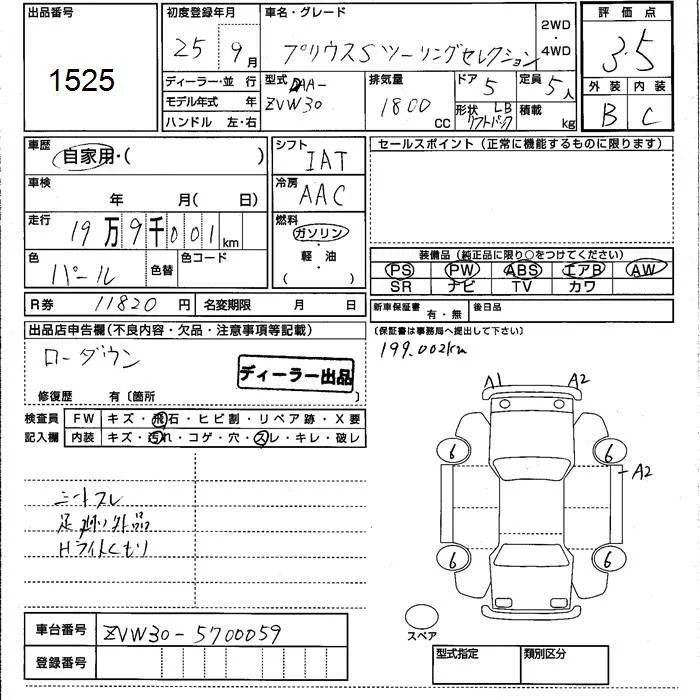 出品番号
1525
初度登録年月
25 9 月
車名・グレード
プリウスSツーリングセレクション
2WD
・
4WD
評価点
3.5
外装 内装
B C
ディーラー・並 行
モデル年式 年
ハンドル 左・右
型式 DAA-
ZVW30
排気量
1800 CC
ドア 5
定員 5人
形状 LB
リフトバック
積載 kg
車歴
自家用・( )
車検
年 月( 日)
走行
19万9千001km
色
パール
色替
色コード
シフト
IAT
冷房
AAC
燃料
ガソリン
・
軽油
( )
セールスポイント(正常に機能するものに限ります)
装備品(純正品に限り○をつけてください)
PS PW ABS エアB AW
SR ナビ TV カワ
R券 11820 円 名変期限 月 日
新車保証書 有・無 後日品
(保証書は事務局へ提出して下さい)
199.002km
出品店申告欄(不良内容・欠品・注意事項等記載)
ローダウン
ディーラー出品
修復歴 有〔箇所 〕
検査員
記入欄
FW キズ・飛石・ヒビ割・リペア跡・X要
内装 キズ・汚れ・コゲ・穴・スレ・キレ・破レ
シートスレ
Hライトくもり
A1 A2
6 6
A2
6 6
スペア
車台番号 ZVW30-5700059
登録番号
型式指定 類別区分